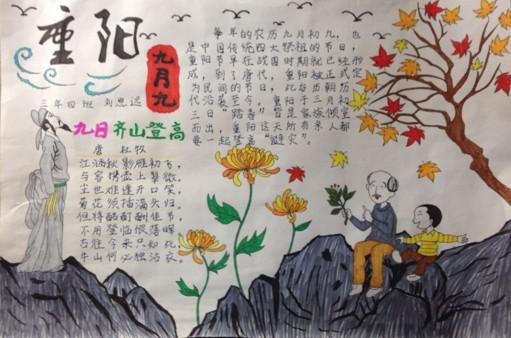 重阳
九月九
三年四班 刘思远
每年的农历九月初九,也
是中国传统四大祭祖的节日,
重阳节早在战国时期就已经形
成,到了唐代,重阳被正式定
为民间的节日,此后历朝历
代沿袭至今。重阳于三月初
三日“踏春”皆是家族倾室
而出,重阳这天所有亲人都
要一起登高“避灾”。
九日齐山登高
唐 杜牧
江涵秋影雁初飞,
与客携壶上翠微。
尘世难逢开口笑,
菊花须插满头归。
但将酩酊酬佳节,
不用登临恨落晖。
古往今来只如此,
牛山何必独沾衣。